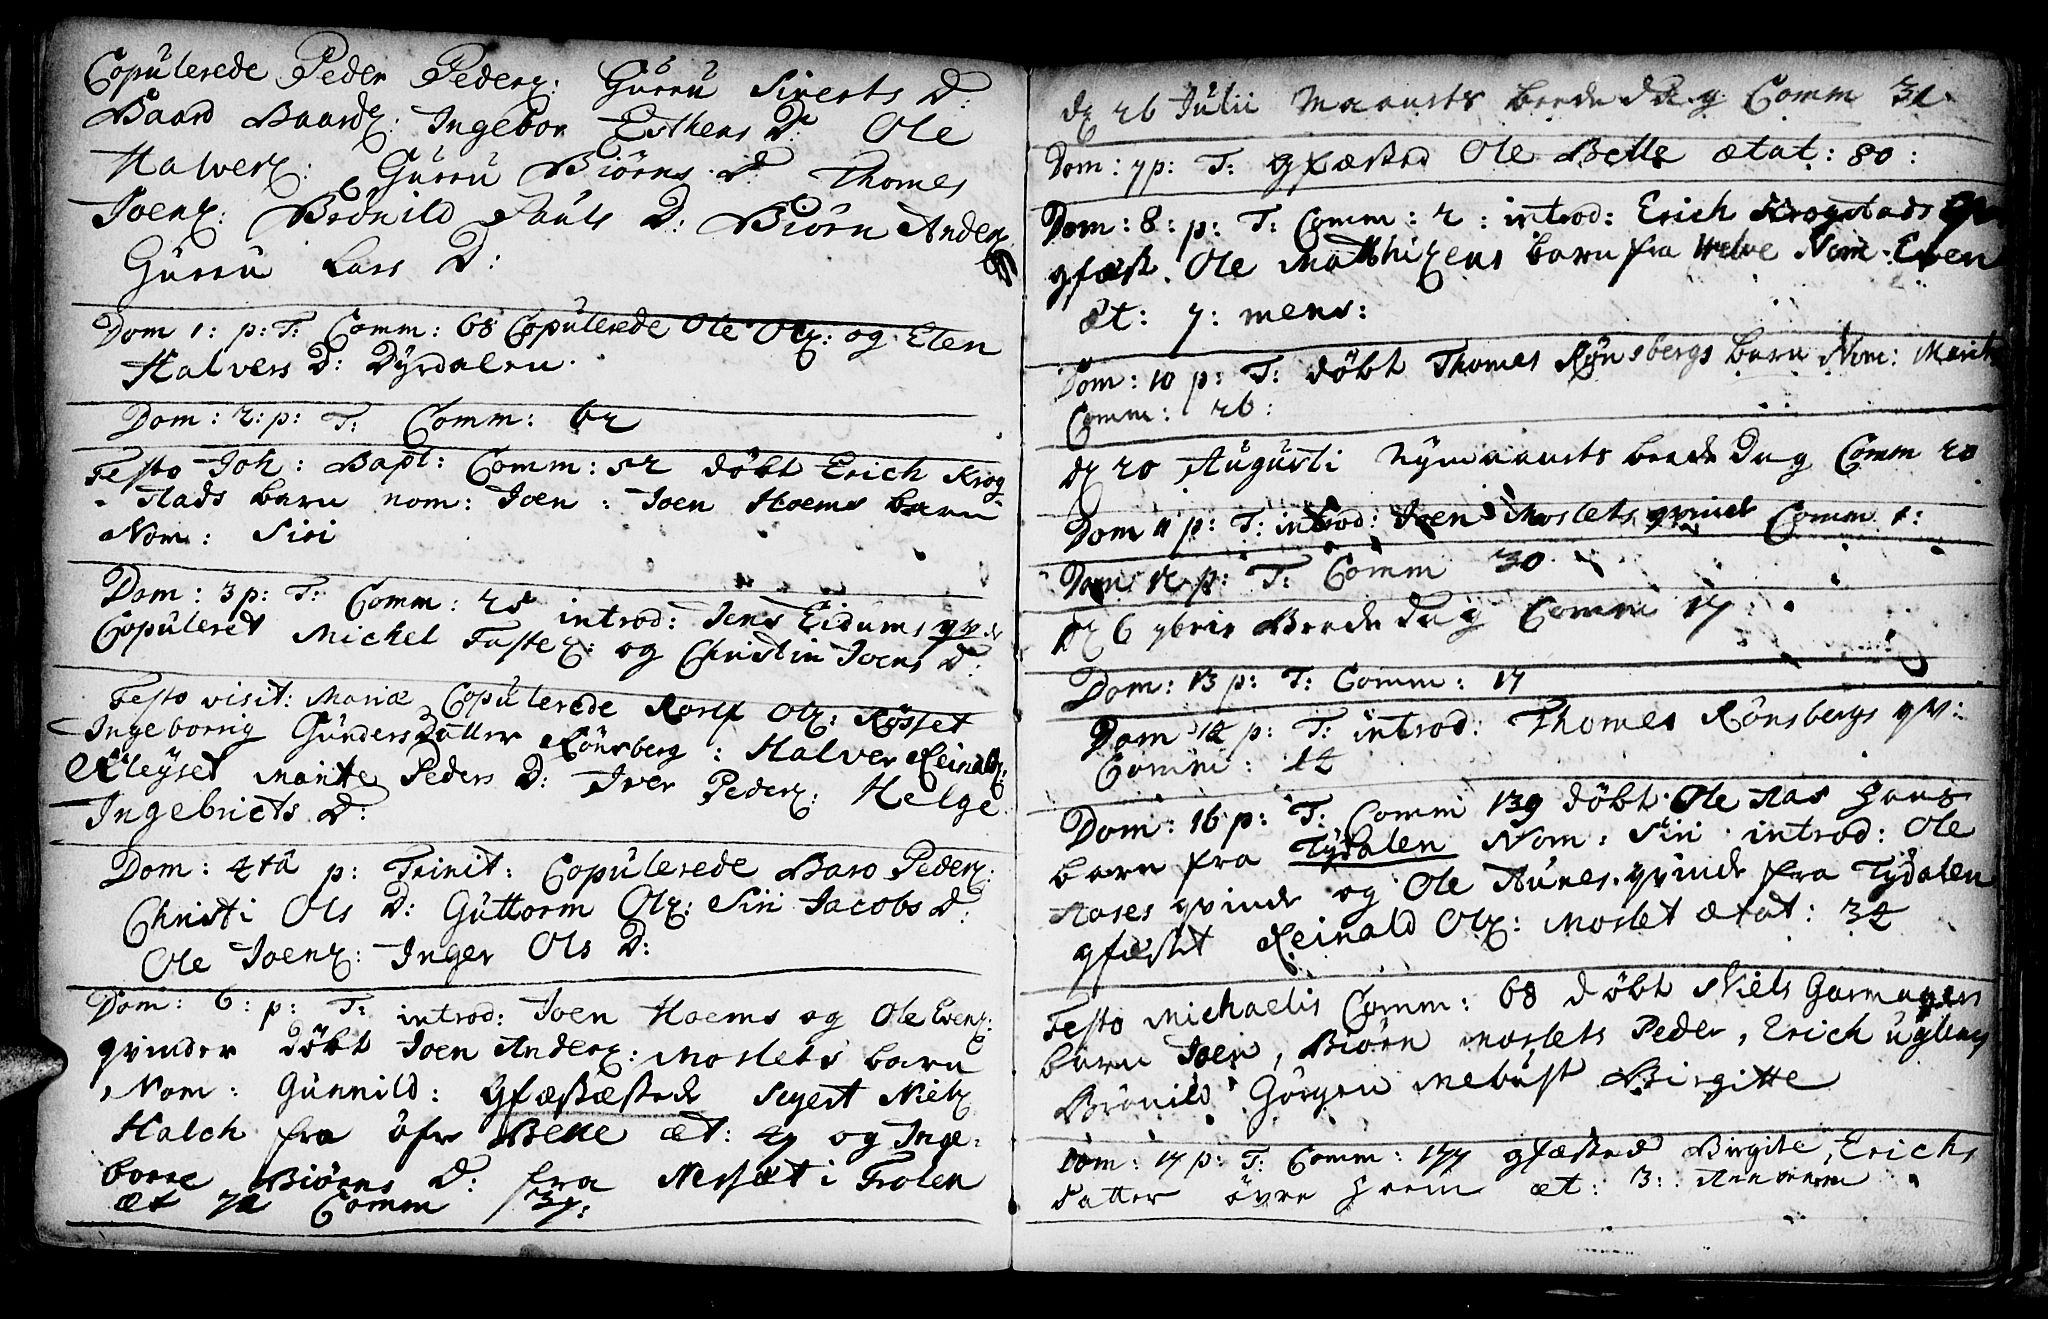 Copulerede Peder Pederz: Guru Siverts D:
Baard Baardz: Ingebor Esthens D: Ole
Halverz: Guru Biörns D: Thomes
Joenz: Brönild Pauls D: Biörn Anderz
Guru Lars D:
Dom 1: p: T: Comm: 68 Copulerede Ole Olz: og Elen
Halvers D: Dyrdalen.
Dom: 2: p: T: Comm: 62
Festo Joh: Bapt: Comm: 52 döbt Erich Krog-
stads barn nom: Joen: Joen Hoems barn
Nom: Siri
Dom: 3 p: T: Comm: 28 introd: Jens Eidums qv:
Copuleret Michel Fastez: og Christin Joens D:
Festo visit: Mariæ Copulerede Rolf Olz: Rösset
Ingeborrig Gunders Datter Rönsberg: Halver Reinaldz:
Kleyset Marite Peders D: Iver Pederz: Helge
Ingebricts D:
Dom: 4ta p: Trinit: Copulerede Baro Pederz:
Christi Ols D: Guttorm Olz: Siri Jacobs D:
Ole Joenz: Inger Ols D:
Dom: 6: p: T: introd: Joen Hoems og Ole Evenz:
qvinder döbt Joen Anderz: Moslets barn
Nom: Gunnild: Gfæstæstede Seyert Nielz
Halch fra öfre Belle æt: 47 og Inge-
borre Biörns D: fra Nessæt i Trolen
æt 72 Comm 37:
dz 26 Julii Maanets beededag Comm 31
Dom: 7 p: T: gfæsted Ole Belle ætat: 80:
Dom: 8: p: T: Comm: 2: introd: Erich Krogstads
gfæst. Ole Matthizens barn fra Nom: Even
æt: 7: mens:
Dom: 10 p: T: döbt Thomes Rönsbergs barn Nom: Marit
Comm: 26:
dz 20 Augusti Nymaanets beededag Comm 20
Dom 11 p: T: introd: Joen Moslets qvinde Comm 1:
Dom 12 p: T: Comm 30
dz 6 7bris Beededag Comm 17:
Dom: 13 p: T: Comm: 17
Dom 14 p: T: introd: Thomes Rönsbergs qv:
Comm: 14
Dom: 16 p: T: Comm 139 döbt Ole Aas
barn fra Tydalen Nom: Siri introd: Ole
Aases qvinde og Ole Aunes qvinde fra Tydalen
gfæstet Reinald Olz: Moslet ætat: 34
Festo Michaelis Comm: 68 döbt Niels Garmagers
barn Joen, Biörn Moslets Peder, Erich uglens
Brönild Görgen Mebust Birgitte
Dom: 17 p: T: Comm: 177 gfæsted Birgite, Erichs
datter övre æt: 3: